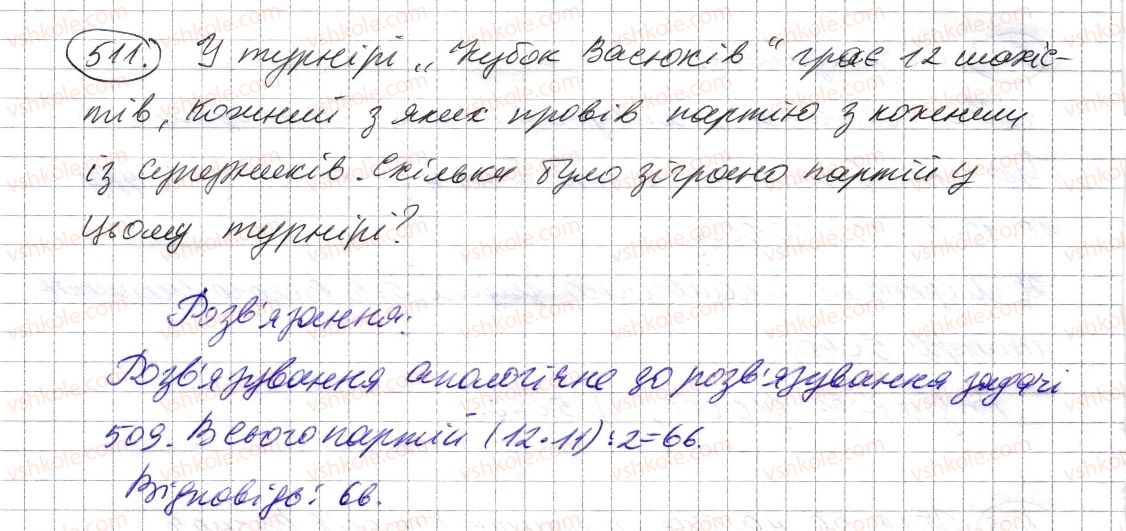 511. У турнірі „Кубок Васюків“ грає 12 шахіс-
тів, кожний з яких провів партію з кожним
із суперників. Скільки було зіграно партій у
цьому турнірі?
Розв'язання:
Розв'язування аналогічне до розв'язування задачі
509. Всього партій (12·11):2=66.
Відповідь: 66.